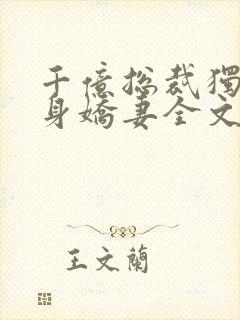 千億総裁獨
身嬌妻全文
王文蘭